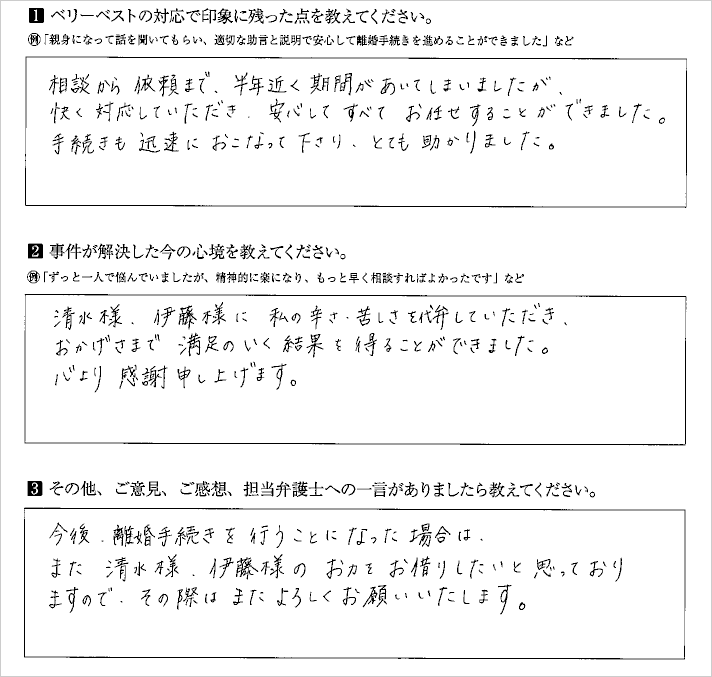 1 ベリーベストの対応で印象に残った点を教えてください。
例「親身になって話を聞いてもらい、適切な助言と説明で安心して離婚手続きを進めることができました」など
相談から依頼まで、半年近く期間があいてしまいましたが、
快く対応していただき、安心してすべてお任せすることができました。
手続きも迅速におこなって下さり、とても助かりました。
2 事件が解決した今の心境を教えてください。
例「ずっと一人で悩んでいましたが、精神的に楽になり、もっと早く相談すればよかったです」など
清水様、伊藤様に私の辛さ・苦しさを代弁していただき、
おかげさまで満足のいく結果を得ることができました。
心より感謝申し上げます。
3 その他、ご意見、ご感想、担当弁護士への一言がありましたら教えてください。
今後、離婚手続きを行うことになった場合は、
また清水様、伊藤様のお力をお借りしたいと思っており
ますので、その際はまたよろしくお願いいたします。